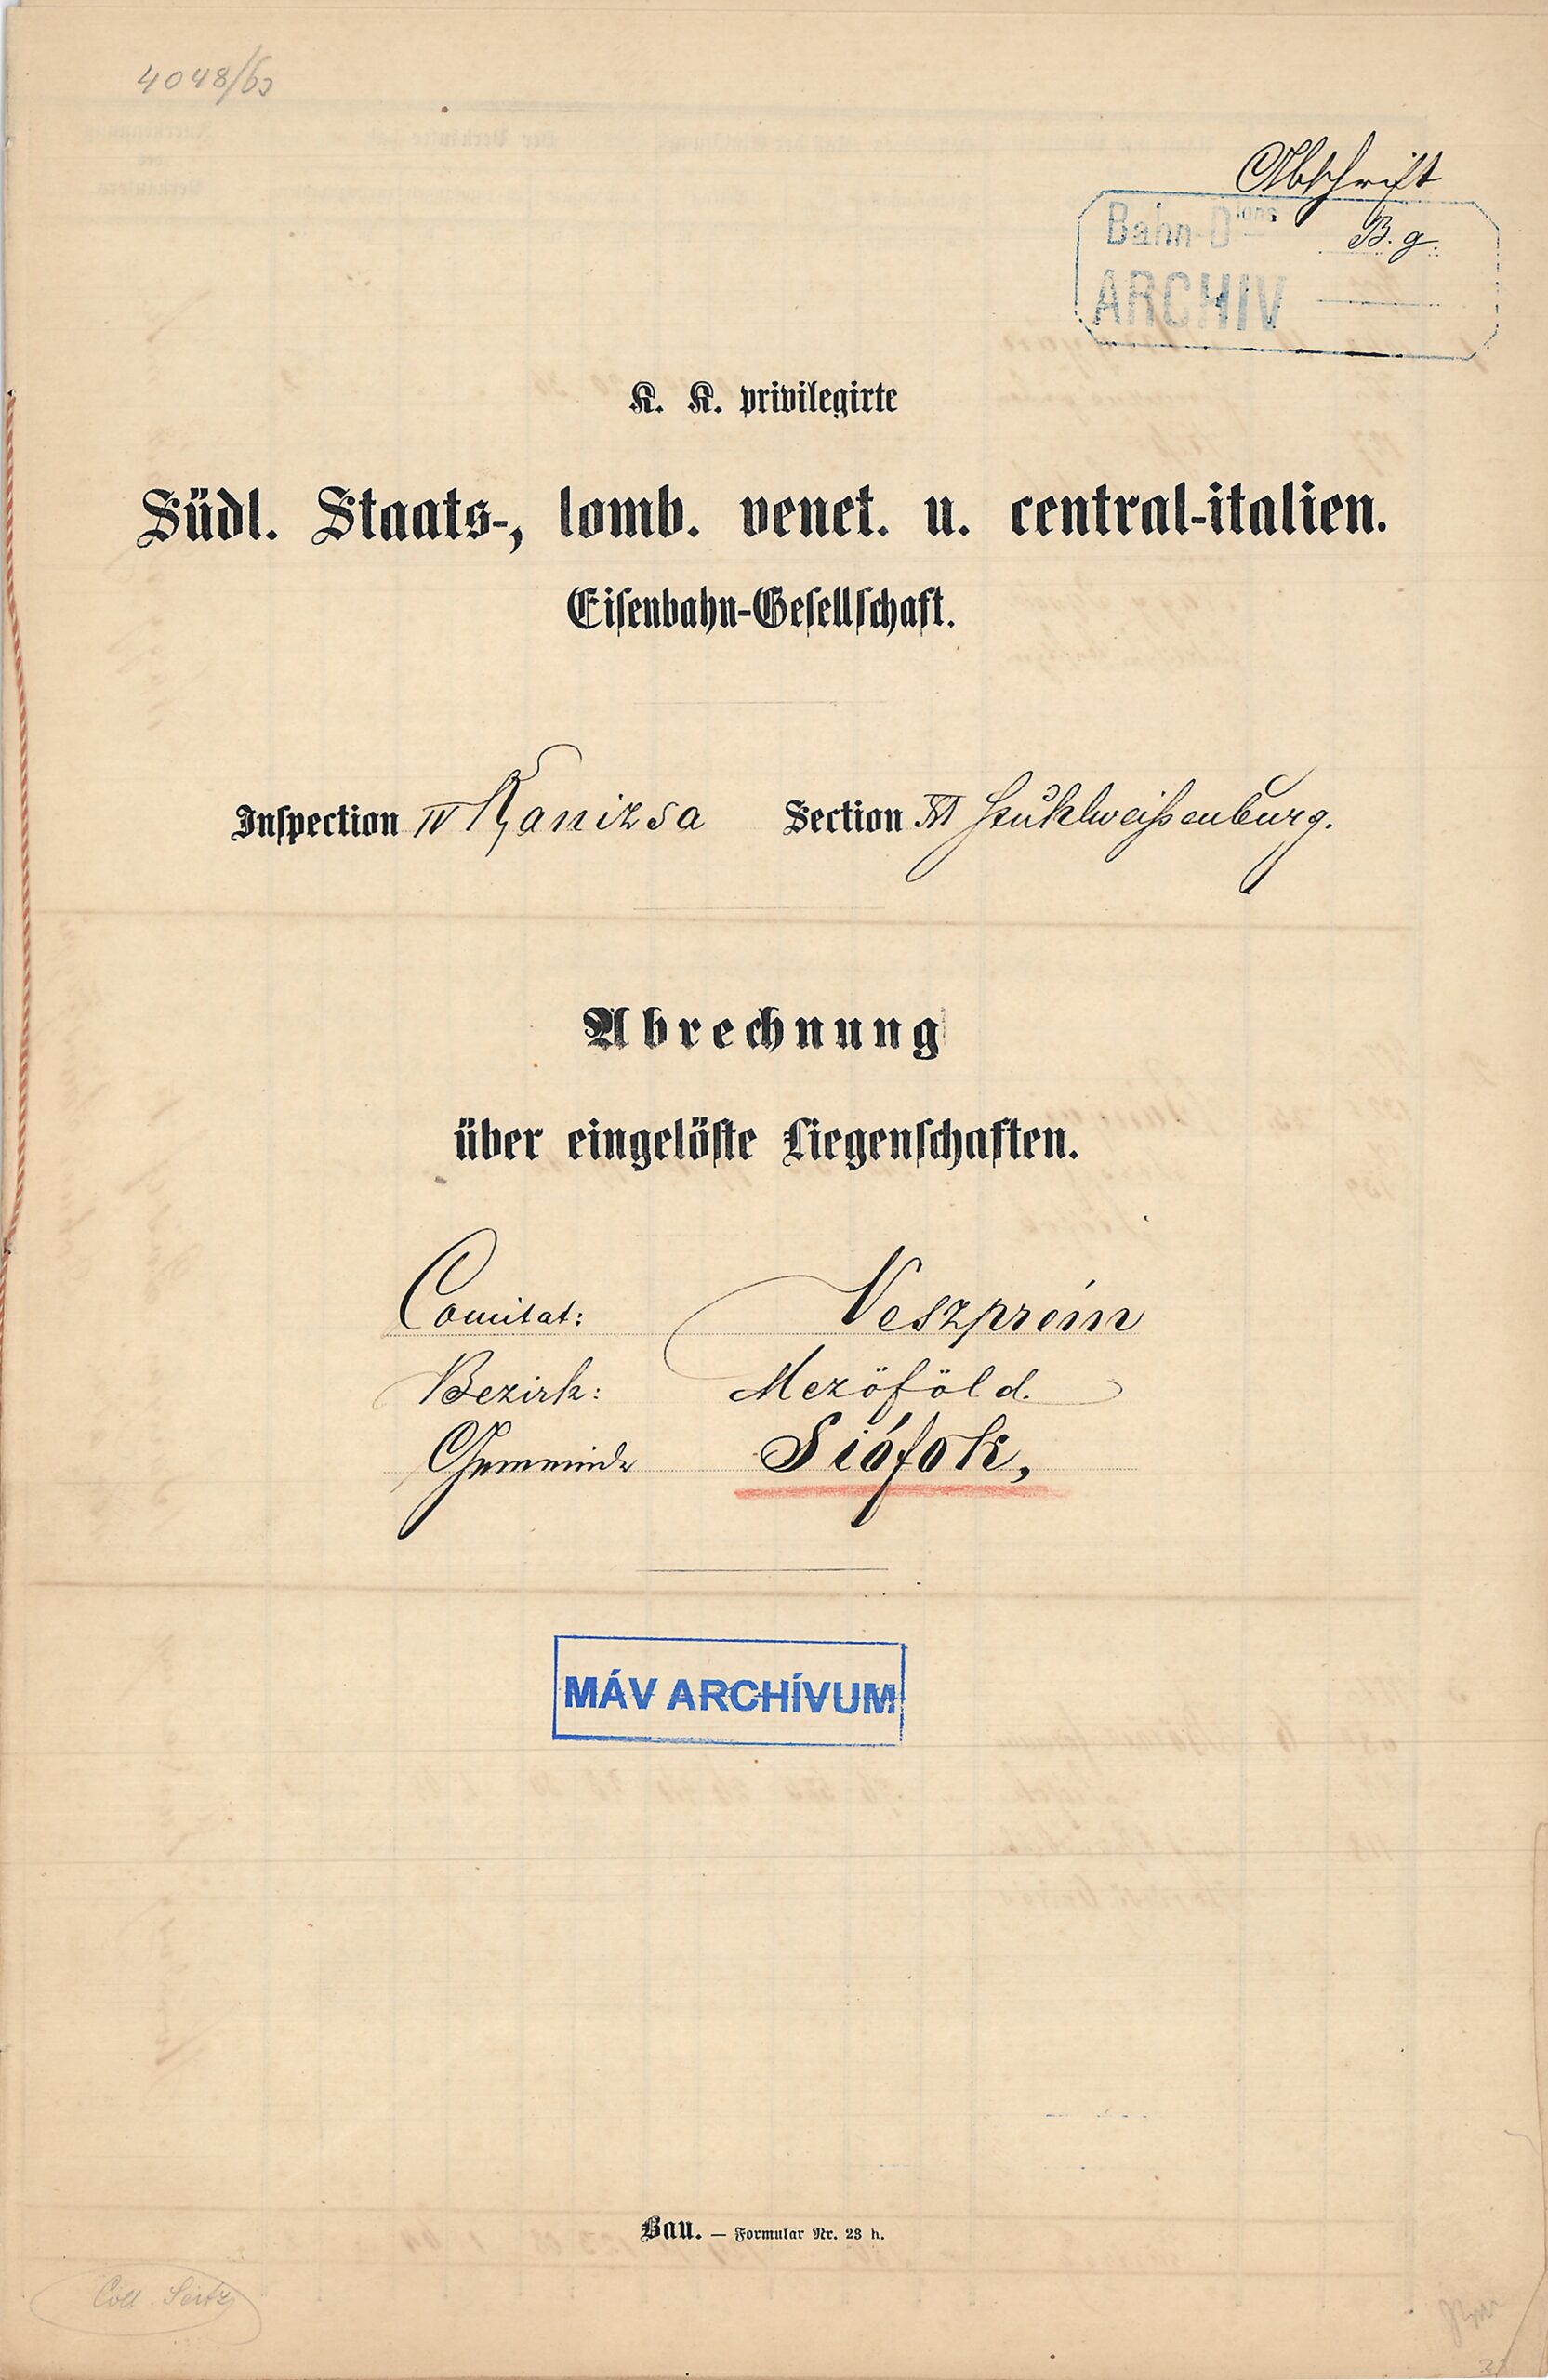 4048/63
Abschrift
Bahn-Dions B. g.
ARCHIV
K. K. privilegirte
Südl. Staats-, lomb. venet. u. central-italien.
Eisenbahn-Gesellschaft.
Inspection IV Kanizsa Section XI Stuhlweißenburg.
Abrechnung
über eingelöste Liegenschaften.
Comitat: Veszprém
Bezirk: Mezöföld.
Gemeinde Siófok,
MÁV ARCHÍVUM
Bau. — Formular Nr. 23 h.
Coll. Seitz